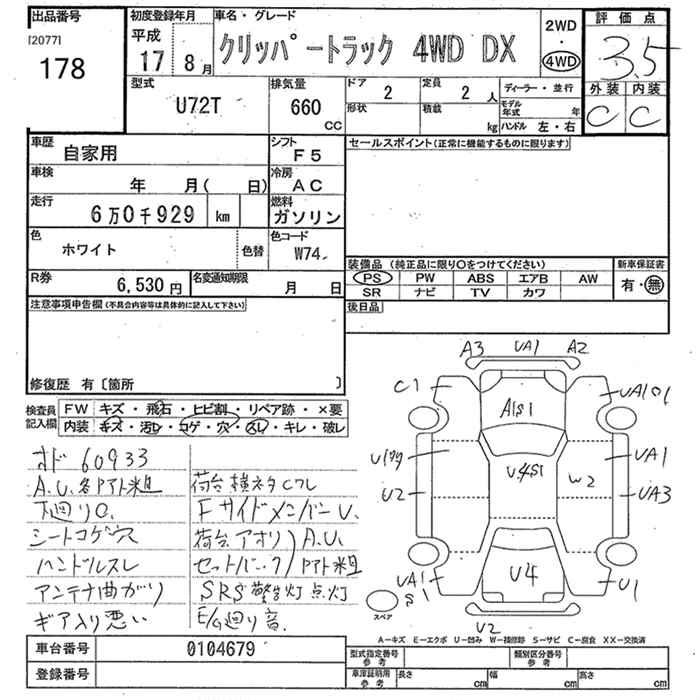 出品番号
[2077]
178
初度登録年月
平成
17 8月
車名・グレード
クリッパートラック 4WD DX
2WD
・
4WD
評価点
3.5
外装 内装
C C
型式
U72T
排気量
660
CC
ドア
2
定員
2 人
形状
積載
kg
ディーラー・並行
モデル年式 年
ハンドル 左・右
車歴
自家用
シフト
F5
車検
年 月( 日)
冷房
AC
走行
6万0千929 km
燃料
ガソリン
色
ホワイト
色替
色コード
W74
R券
6,530円
名変通知期限
月 日
セールスポイント(正常に機能するものに限ります)
装備品(純正品に限り○をつけてください)
PS PW ABS エアB AW
SR ナビ TV カワ
新車保証書
有・無
後日品
注意事項申告欄(不具合内容等は具体的に記入して下さい)
修復歴 有〔箇所 〕
検査員
記入欄
FW キズ・飛石・ヒビ割・リペア跡・×要
内装 キズ・汚レ・コゲ・穴・スレ・キレ・破レ
オド 60933
A.U.各Pアト米且
下廻りC.
シートコゲ穴
ハンドルスレ
アンテナ曲がり
ギア入り悪い
荷台横ネタCフレ
FサイドメンバーU.
荷台アオリ
セットバック
A.U.
Pアト米且
SRS警告灯点灯
E/G廻り音.
A3 UA1 A2
C1
A1S1
UA1
U4S1
W2
U2
UA3
UA1
S1
U4
U1
U2
スペア
A−キズ E−エクボ U−凹み W−補修跡 S−サビ C−腐食 XX−交換済
車台番号
0104679
登録番号
型式指定番号
参考
類別区分番号
参考
車庫証明用
参考
長さ cm
幅 cm
高さ cm